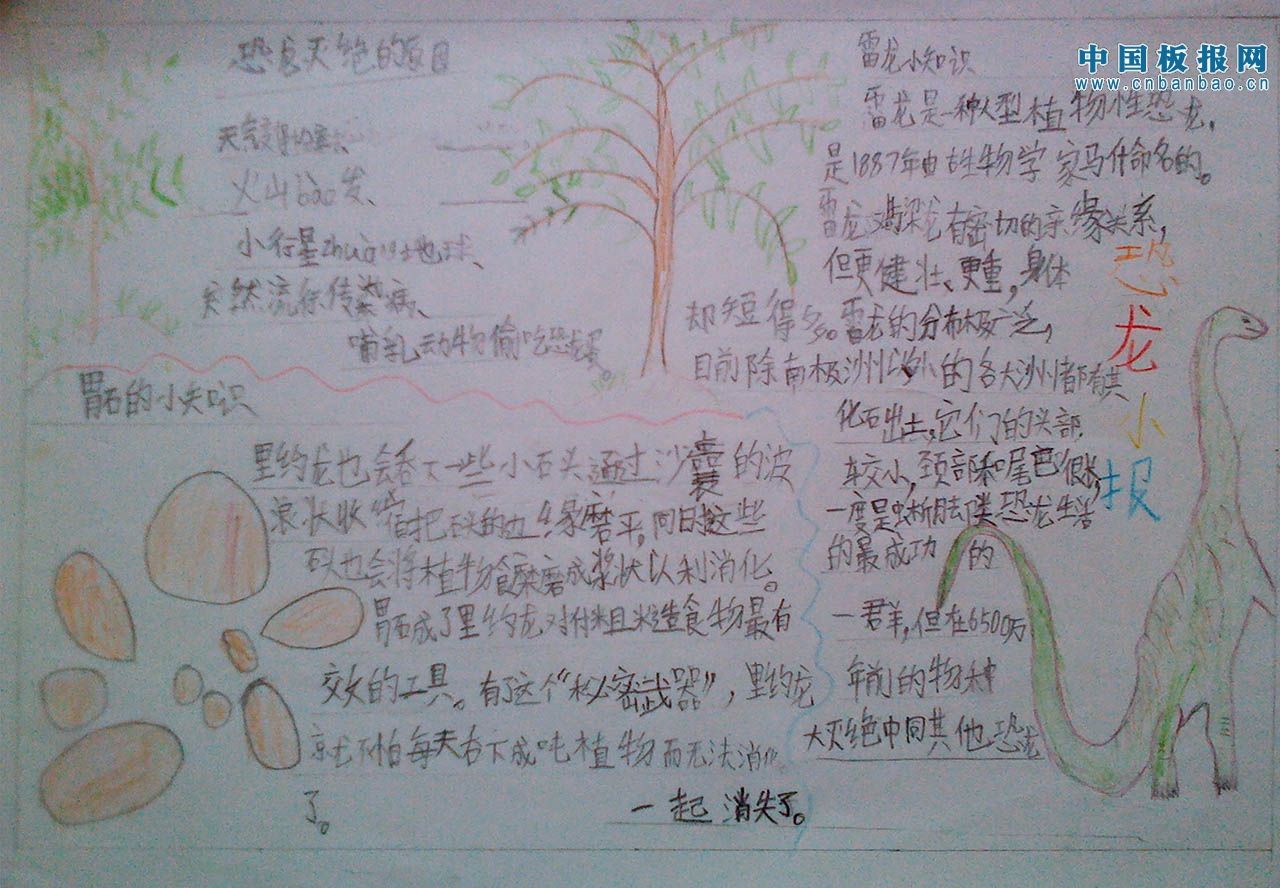 中国板报网
www.cnbanbao.cn
恐龙小报
恐龙灭绝的原因
火山bào发、
小行星zhuàng地球、
突然流行传染病、
哺乳动物偷吃恐龙蛋。
雷龙小知识
雷龙是一种大型植物性恐龙，
是1887年由古生物学家马什命名的。
雷龙与梁龙有密切的亲缘关系，
但更健壮、更重，身体
却短得多。雷龙的分布极广泛，
目前除南极洲以外的各大洲都有其
化石出土，它们的头部
较小，颈部和尾巴很长，
一度是蜥脚类恐龙生活
的最成功 的
一君羊，但在6500万
年前的物种
大灭绝中同其他恐龙
一起 消失了。
胃石的小知识
里约龙也会吞下一些小石头通过沙囊的波
浪状收缩把石头的边缘磨平，同时这些
石头也会将植物食糜磨成浆状以利消化。
胃石成了里约龙对付粗糙食物最有
效的工具。有了这个“秘密武器”，里约龙
就不怕每天吞下成吨植物而无法消化
了。